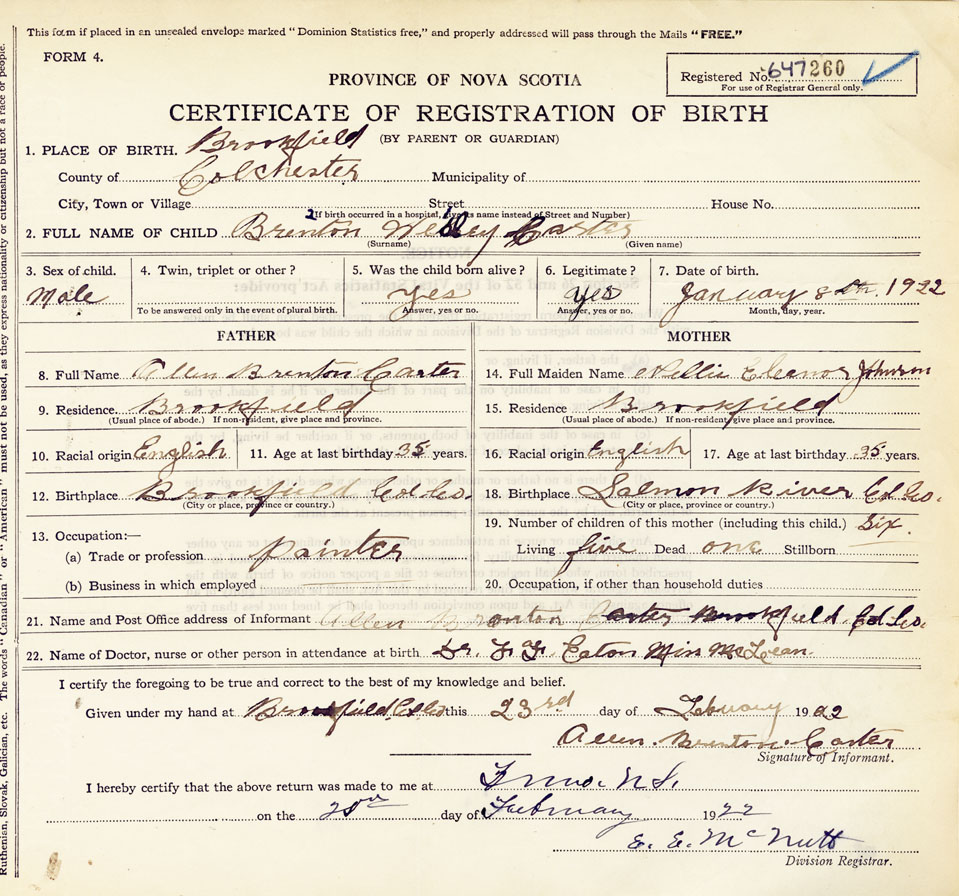 This form if placed in an unsealed envelope marked "Dominion Statistics free," and properly addressed will pass through the Mails "FREE."
FORM 4.
Registered No. 647260
For use of Registrar General only.
PROVINCE OF NOVA SCOTIA
CERTIFICATE OF REGISTRATION OF BIRTH
(BY PARENT OR GUARDIAN)
1. PLACE OF BIRTH. Brookfield
County of Colchester Municipality of
City, Town or Village Street House No.
If birth occurred in a hospital, give its name instead of Street and Number)
2. FULL NAME OF CHILD Brenton Wesley Carter
(Surname) (Given name)
3. Sex of child. 4. Twin, triplet or other? 5. Was the child born alive? 6. Legitimate? 7. Date of birth.
Male yes yes January 8th. 1922
To be answered only in the event of plural birth. Answer, yes or no. Answer, yes or no. Month, day, year.
FATHER MOTHER
8. Full Name Allen Brenton Carter 14. Full Maiden Name Nellie Eleanor Johnson
9. Residence Brookfield 15. Residence Brookfield
(Usual place of abode.) If non-resident, give place and province. (Usual place of abode.) If non-resident, give place and province.
10. Racial origin English 11. Age at last birthday 35 years. 16. Racial origin English 17. Age at last birthday 35 years.
12. Birthplace Brookfield Col Co. 18. Birthplace Salmon River Col Co.
(City or place, province or country.) (City or place, province or country.)
13. Occupation:— 19. Number of children of this mother (including this child.) Six.
(a) Trade or profession Painter Living five Dead one Stillborn
(b) Business in which employed 20. Occupation, if other than household duties
21. Name and Post Office address of Informant Allen Brenton Carter Brookfield. Col Co.
22. Name of Doctor, nurse or other person in attendance at birth Dr. Eaton Miss McLean.
I certify the foregoing to be true and correct to the best of my knowledge and belief.
Given under my hand at Brookfield Col Co this 23rd day of Febuary 1922
Allen. Brenton. Carter
Signature of Informant.
I hereby certify that the above return was made to me at Truro N.S.
on the day of February 1922
E. E. McNutt
Division Registrar.
Ruthenian, Slovak, Galician, etc. The words "Canadian" or "American" must not be used, as they express nationality or citizenship but not a race or people.